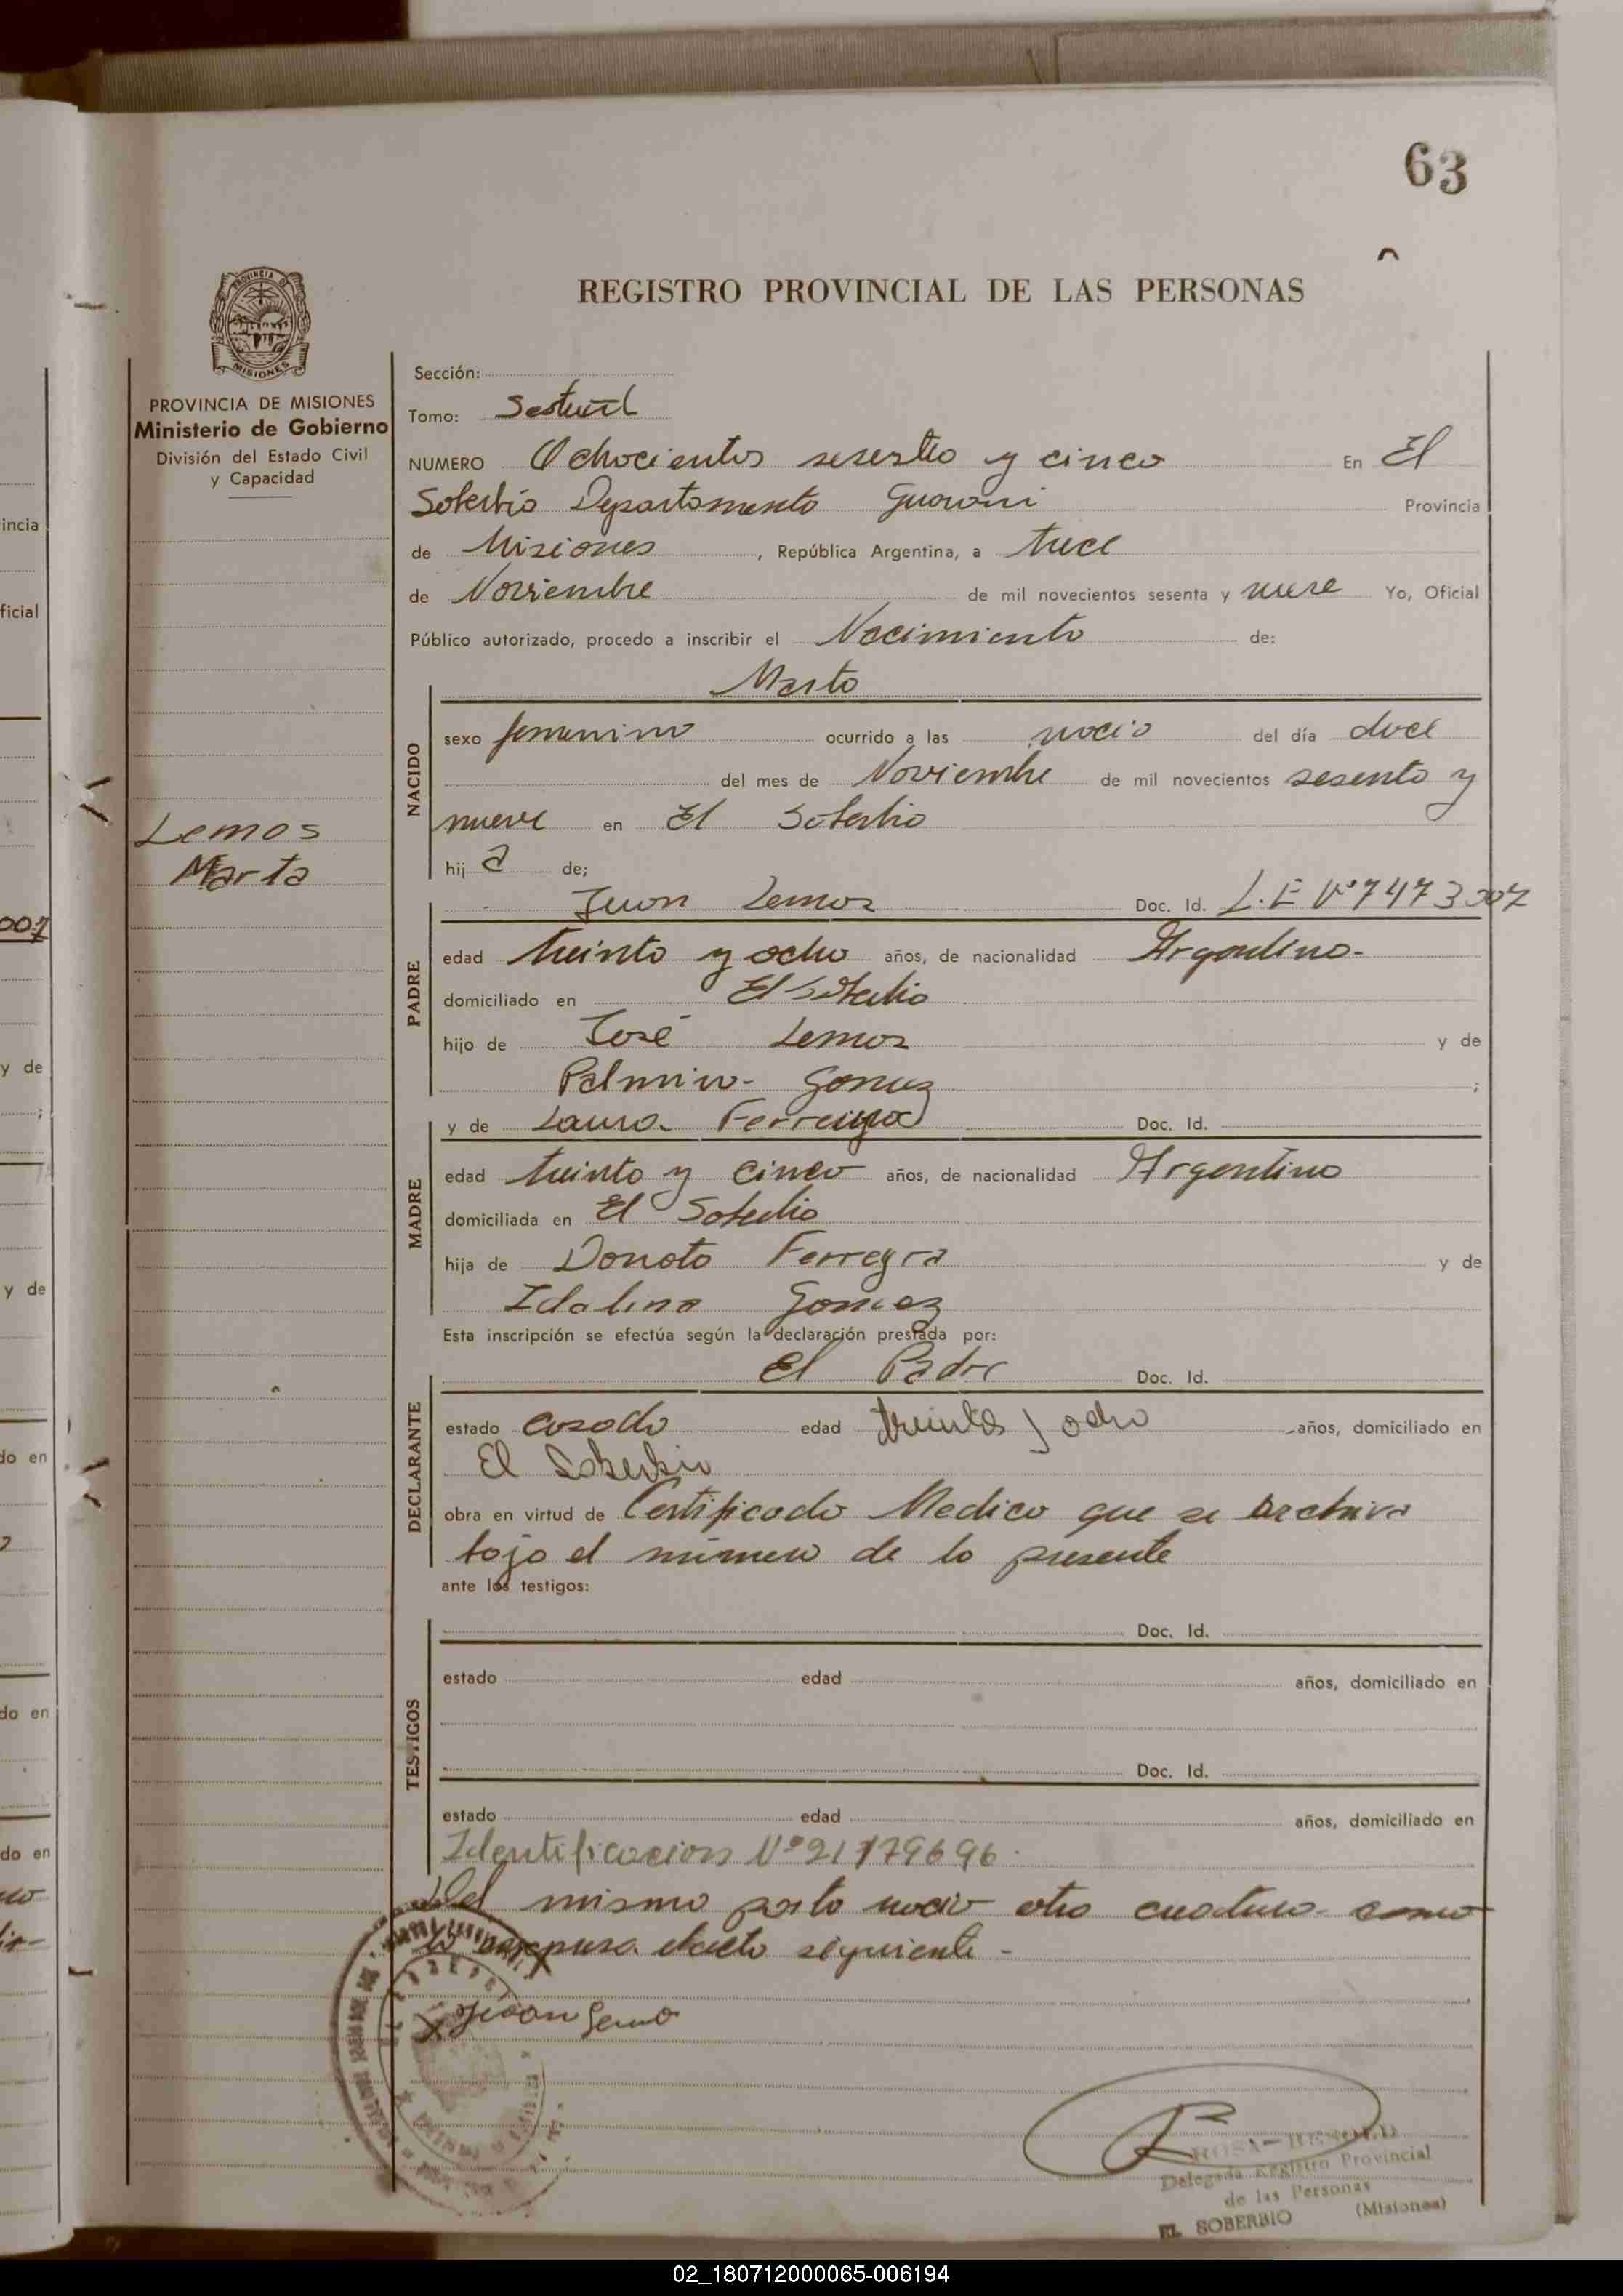 63
REGISTRO PROVINCIAL DE LAS PERSONAS
PROVINCIA DE MISIONES
PROVINCIA DE MISIONES
Ministerio de Gobierno
División del Estado Civil
y Capacidad
Lemos
Marta
Sección:
Tomo:
NUMERO Ochocientos sesenta y cinco En El
Soberbio Departamento Guarani Provincia
de Misiones, República Argentina, a trece
de Noviembre de mil novecientos sesenta y nueve Yo, Oficial
Público autorizado, procedo a inscribir el Nacimiento de:
Marta
NACIDO
sexo femenino ocurrido a las del día doce
del mes de Noviembre de mil novecientos sesenta y
nueve en El Soberbio
hij a de;
PADRE
Juan Lemos Doc. Id. L.E Nº 7473007
edad treinta y ocho años, de nacionalidad Argentina-
domiciliado en El Soberbio
hijo de José Lemos y de
Palmira- Gomez ;
MADRE
y de Laura- Ferreyra Doc. Id.
edad treinta y cinco años, de nacionalidad Argentina
domiciliada en El Soberbio
hija de Donato Ferreyra y de
Idalina Gomez
Esta inscripción se efectúa según la declaración prestada por:
DECLARANTE
El Padre Doc. Id.
estado casado edad treinta y ocho años, domiciliado en
El Soberbio
obra en virtud de Certificado Medico que se archiva
bajo el número de la presente
ante los testigos:
TESTIGOS
Doc. Id.
estado edad años, domiciliado en
Doc. Id.
estado edad años, domiciliado en
Identificacion Nº 21179696.
Del mismo parto nacio otra criatura- como
lo expresa el acta siguiente-
Juan Lemo
ROSA BESOLD
Delegada Registro Provincial
de las Personas
EL SOBERBIO (Misiones)
incia
ficial
007
y de
;
y de
do en
do en
do en
02_180712000065-006194